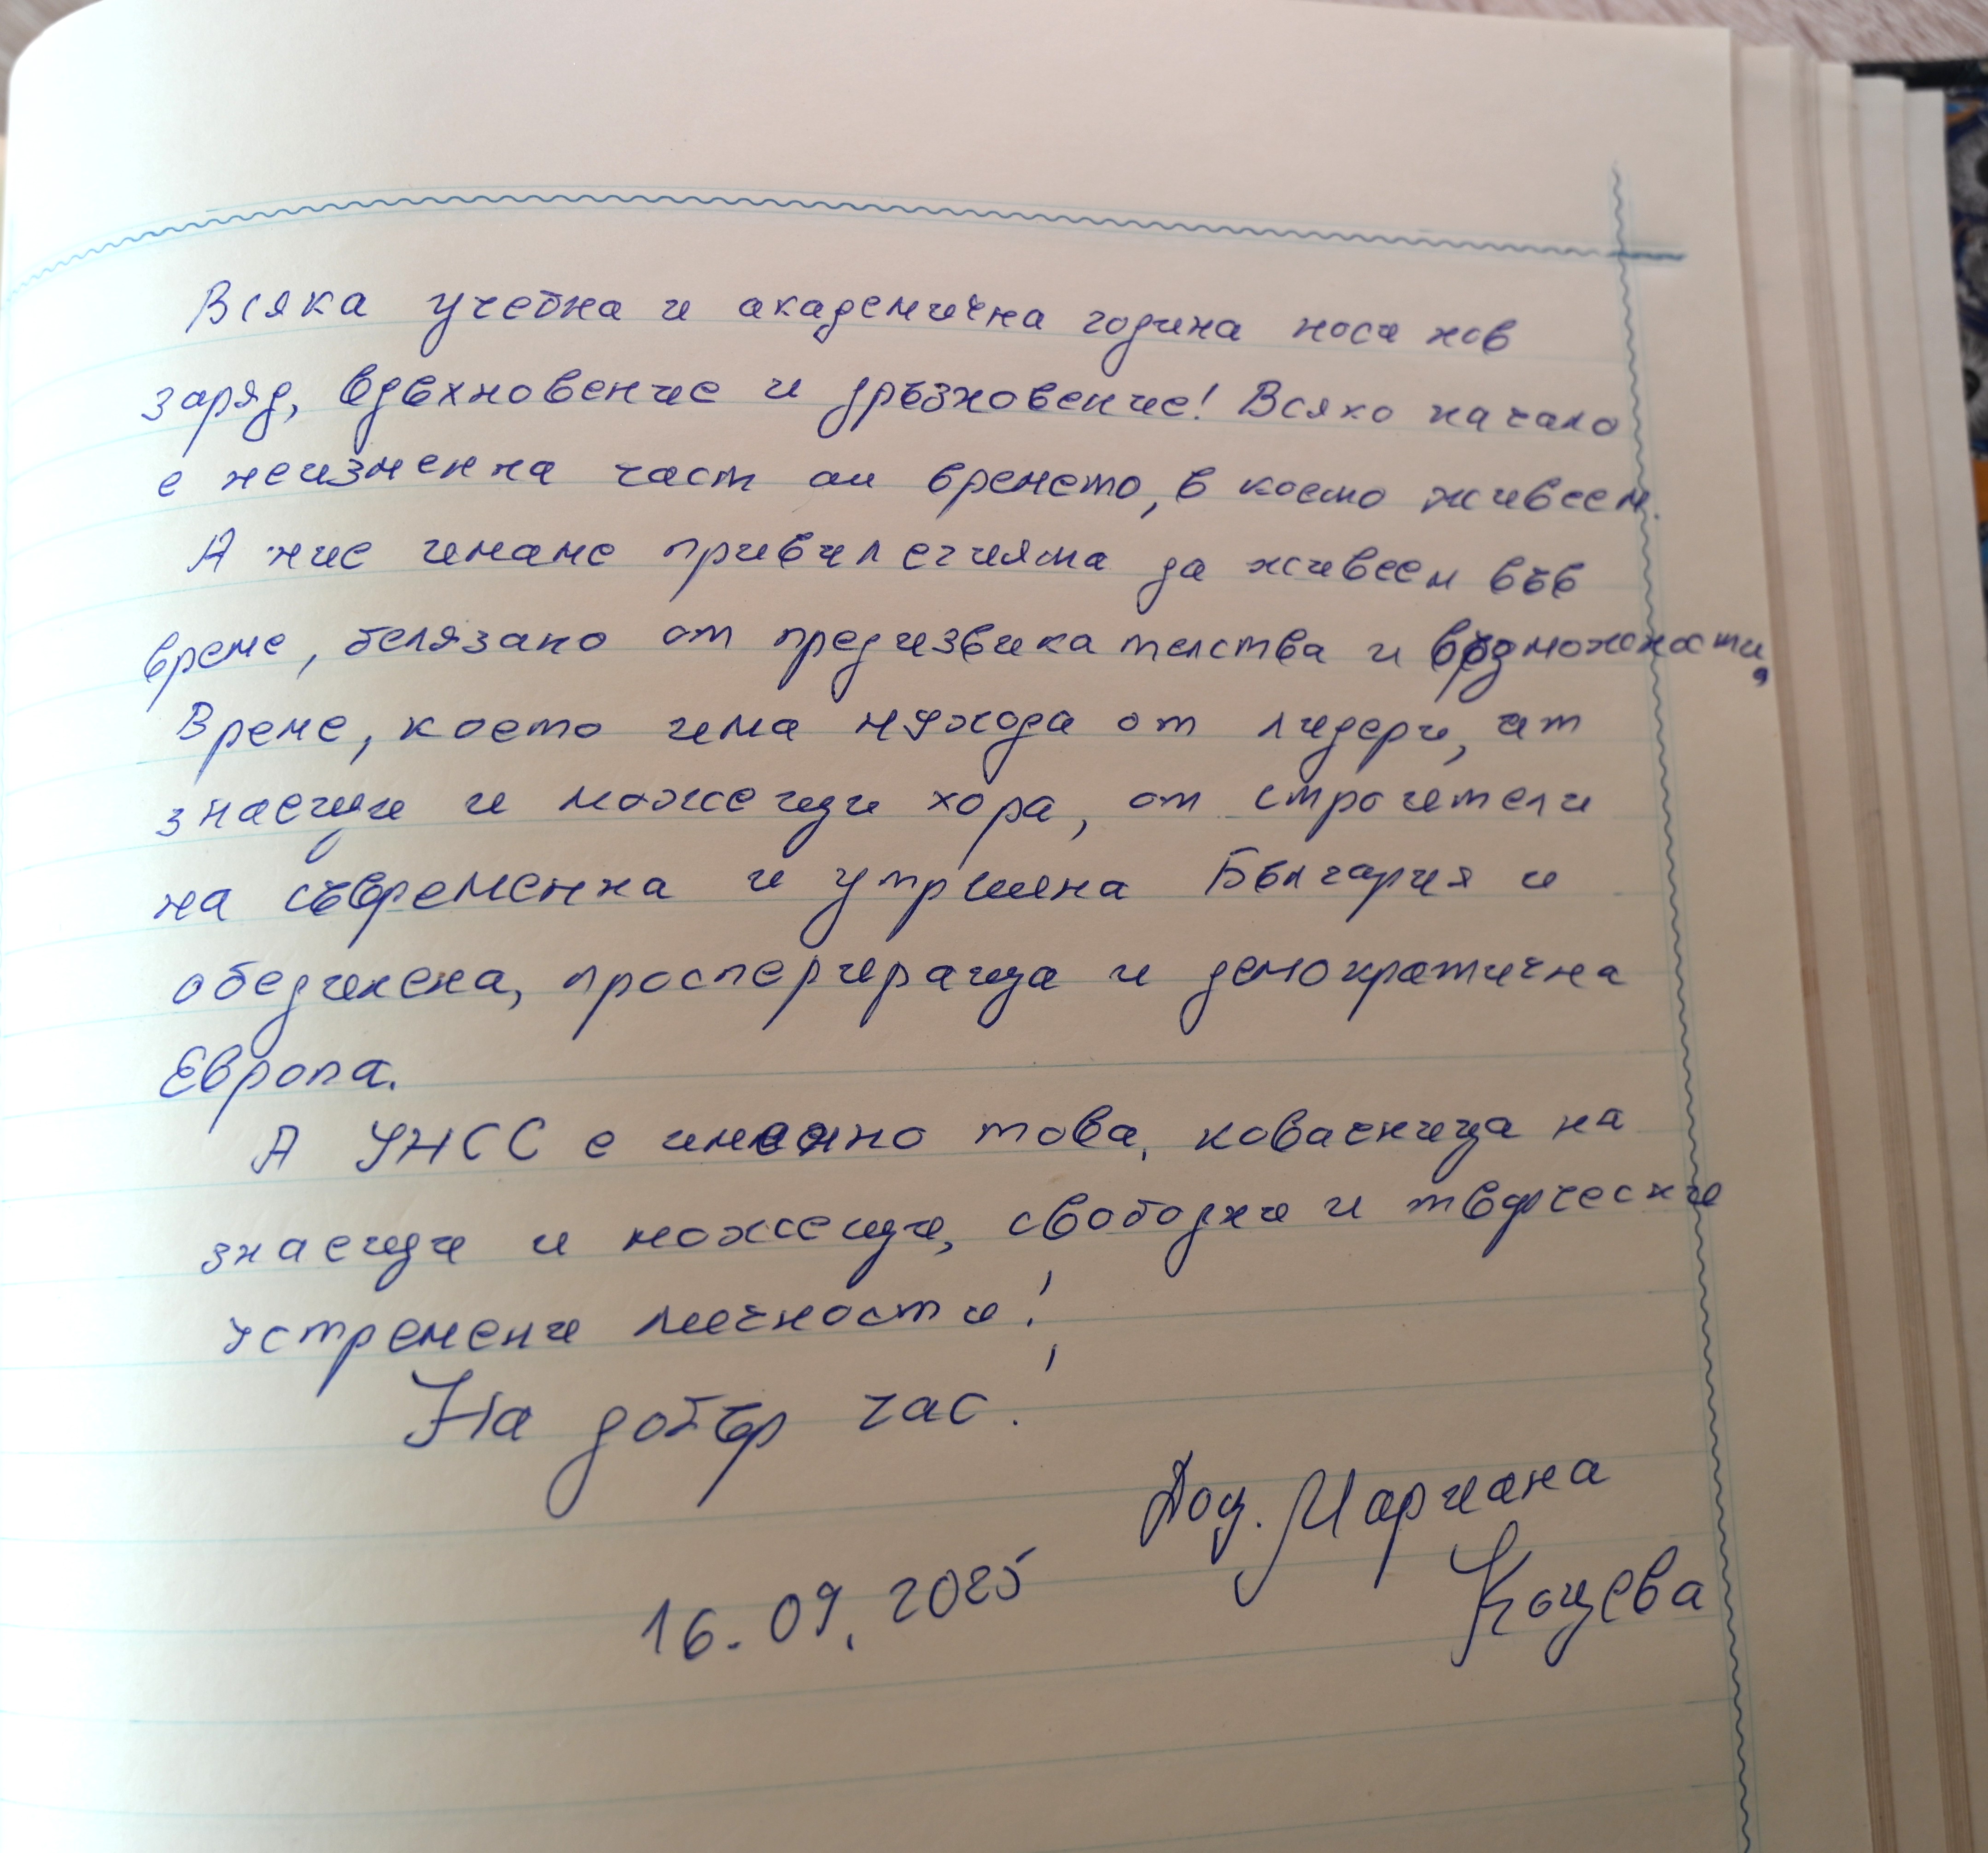 Всяка учебна и академична година носи нов
заряд, вдъхновение и дръзновение! Всяко начало
е неизменна част от времето, в което живеем.
А ние имаме привилегията да живеем във
време, белязано от предизвикателства и възможности,
Време, което има нужда от лидери, от
знаещи и можещи хора, от строители
на съвременна и утрешна България и
обединена, просперираща и демократична
Европа.
А УНСС е именно това, ковачница на
знаещи и можещи, свободни и творчески
устремени личности!
На добър час!
Доц. Мариана
Коцева
16.09.2025